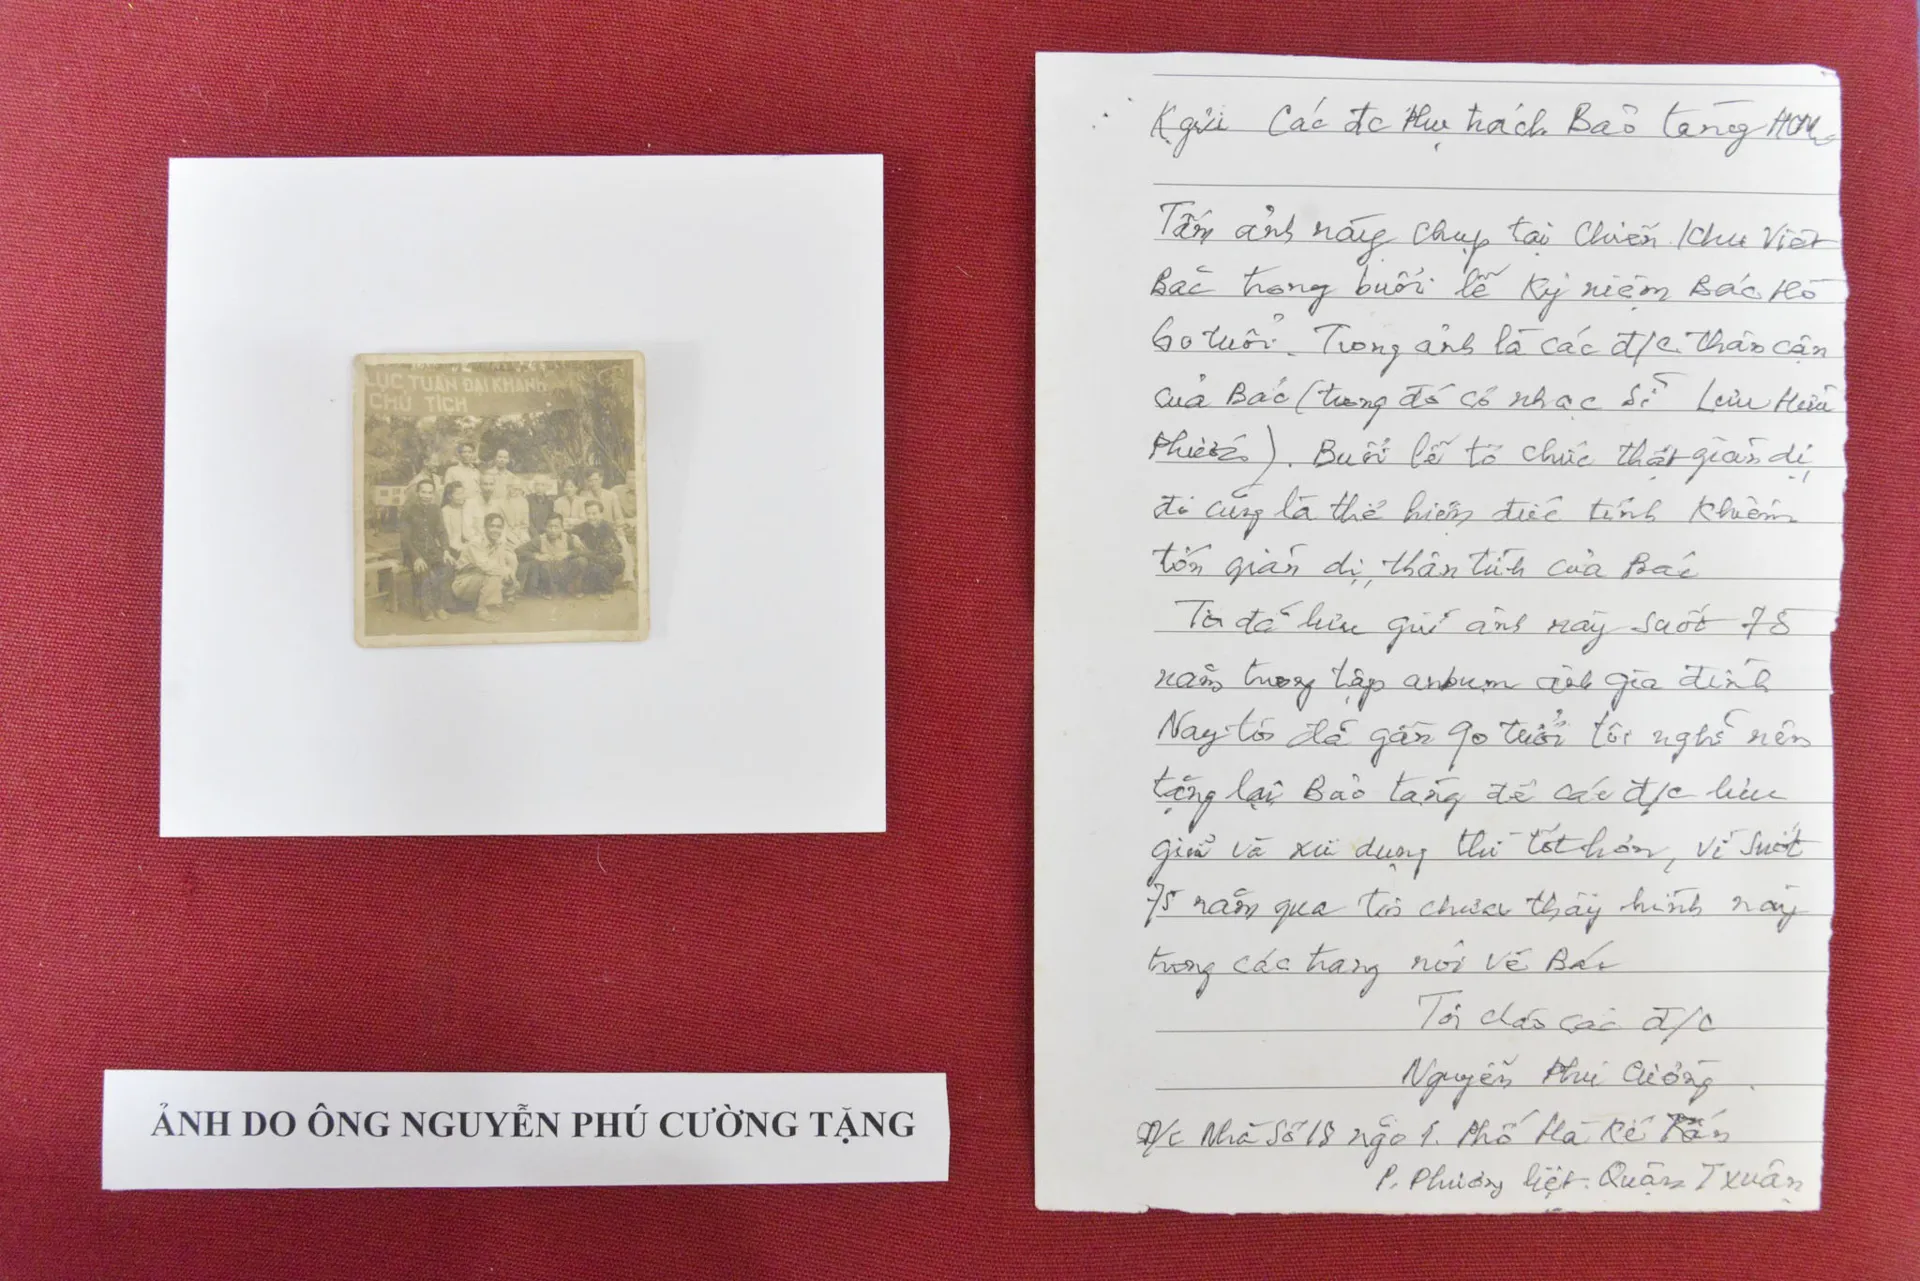 LỤC TUẦN ĐẠI KHÁNH
CHỦ TỊCH
ẢNH DO ÔNG NGUYỄN PHÚ CƯỜNG TẶNG
K gửi Các đc phụ trách Bảo tàng HCM
Tấm ảnh này chụp tại chiến khu Việt
Bắc trong buổi lễ kỷ niệm Bác Hồ
60 tuổi. Trong ảnh là các đ/c thân cận
của Bác (trong đó có nhạc sĩ Lưu Hữu
Phước). Buổi lễ tổ chức thật giản dị
đó cũng là thể hiện đức tính khiêm
tốn giản dị, thân tình của Bác
Tôi đã lưu giữ ảnh này suốt 75
năm trong tập anbum ảnh gia đình
Nay tôi đã gần 90 tuổi tôi nghĩ nên
tặng lại Bảo tàng để các đ/c lưu
giữ và xử dụng thì tốt hơn, vì suốt
75 năm qua tôi chưa thấy hình này
trong các trang nói về Bác
Tôi chào các đ/c
Nguyễn Phú Cường
Đ/c Nhà số 18 ngõ 1. Phố Hà Kế Tấn
P. Phương liệt. Quận T xuân